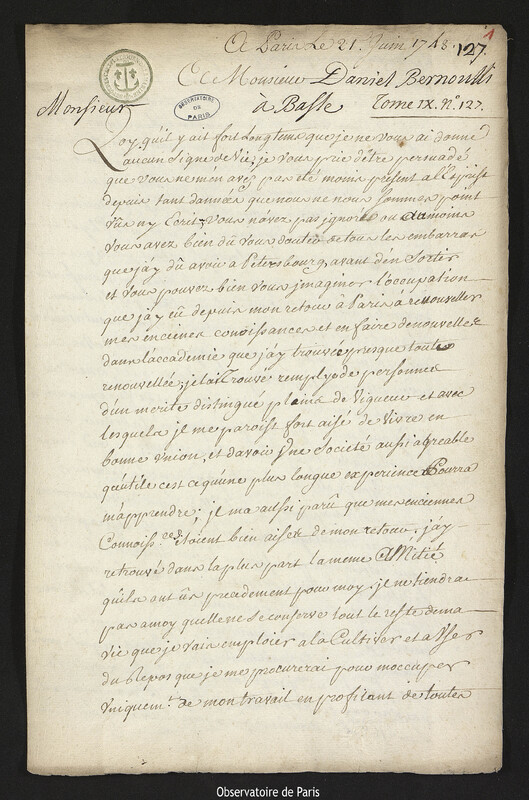 A Paris Le 21. Juin 1748. 127. 1
A Monsieur Daniel Bernoulli
Monsieur OBSERVATOIRE DE PARIS à Basle Tome IX. N.° 127.
Quoy qu'il y ait fort Longtems que je ne vous ai donné
aucun Signe de Vie, je vous prie d'être persuadé
que vous ne m'en avez pas été moins present a l'Esprit
depuis tant d'années que nous ne nous sommes point
vûs ny Ecrit; vous n'avez pas ignoré ou du moins
vous avez bien dû vous douter de tous les embarras
que j'ay dû avoir a Petersbourg, avant d'en Sortir
et vous pouvez bien vous jmaginer l'occupation
que j'ay eû depuis mon retour à Paris a renouveller
mes enciénes connoissances et en faire de nouvelles
dans l'accademie que j'ay trouvée presque toute
renouvellée; je l'ai trouvé remplye de personnes
d'un merite distingué pleins de Vigueur et avec
lesquels jl me paroist fort aisé de Vivre en
bonne Vnion, et d'avoir Vne Société aussi agreable
qu'utile c'est ce qu'une plus longue experience Pourra
m'apprendre; jl m'a aussi parû que mes enciennes
Connoiss.ces étoient bien aises de mon retour, j'ay
retrouvé dans la plus part la meme Amitié
qu'ils ont ûs precedement pour moy, jl ne tiendra
pas a moy qu'elle ne Se conserve tout le reste de ma
vie que je vais emploier a la Cultiver et a Vser
du Repos que je me procurerai pour m'occuper
Vniquem.t de mon travail en profitant de toutes
Observatoire de Paris